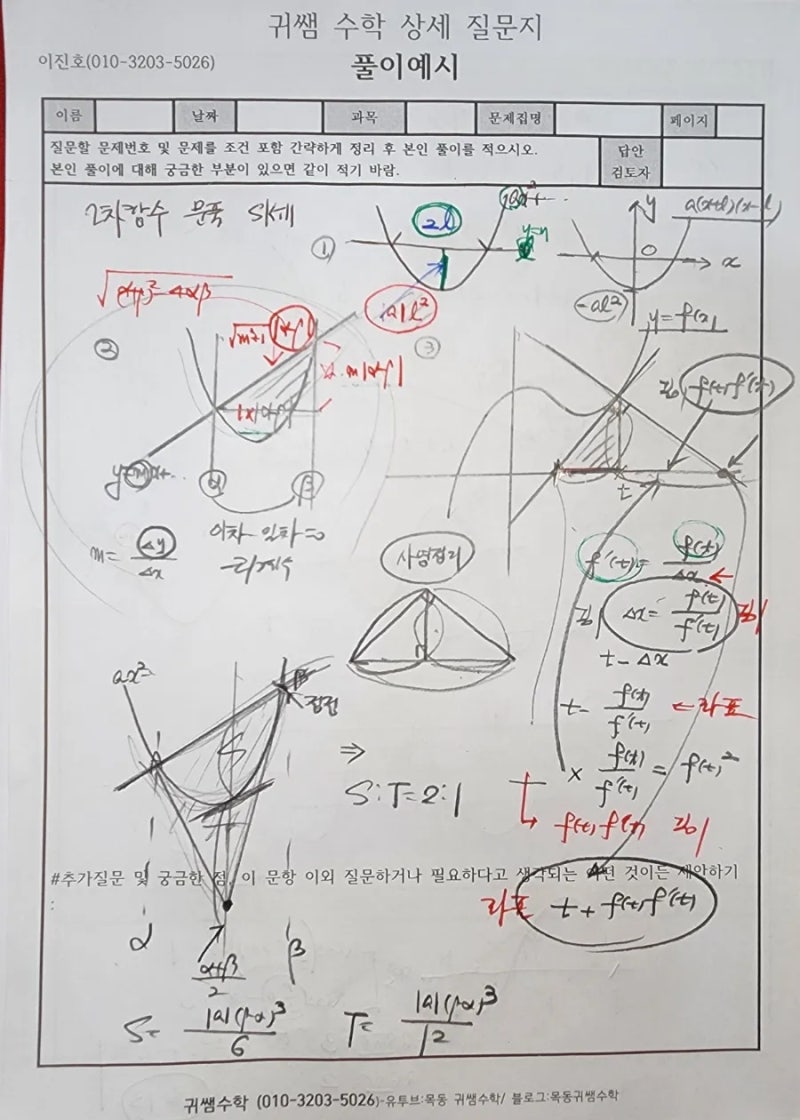 귀쌤 수학 상세 질문지
이진호(010-3203-5026)
풀이예시
이름 날짜 과목 문제집명 페이지
질문할 문제번호 및 문제를 조건 포함 간략하게 정리 후 본인 풀이를 적으시오.
본인 풀이에 대해 궁금한 부분이 있으면 같이 적기 바람.
답안
검토자
2차함수
①
2l
y
a(x+l)(x-l)
O
x
|a|l²
-al²
y=f(x)
②
③
길이 f(t)f'(t)
t
α
β
m= Δy/Δx
이차-일차=0
f'(t)= f(t)/Δx
길이 Δx= f(t)/f'(t) 길이
t-Δx
t- f(t)/f'(t) ← 좌표
ax²
접점
⇒
S:T=2:1
× f(t)/f'(t) = f(t)²
f(t)f'(t) 길이
#추가질문 및 궁금한 점, 이 문항 이외 질문하거나 필요하다고 생각되는 어떤 것이든 제안하기
:
좌표 t+f(t)f'(t)
α
(α+β)/2
β
S= |a|(β-α)³/6
T= |a|(β-α)³/12
귀쌤수학 (010-3203-5026)-유투브:목동 귀쌤수학/ 블로그:목동귀쌤수학